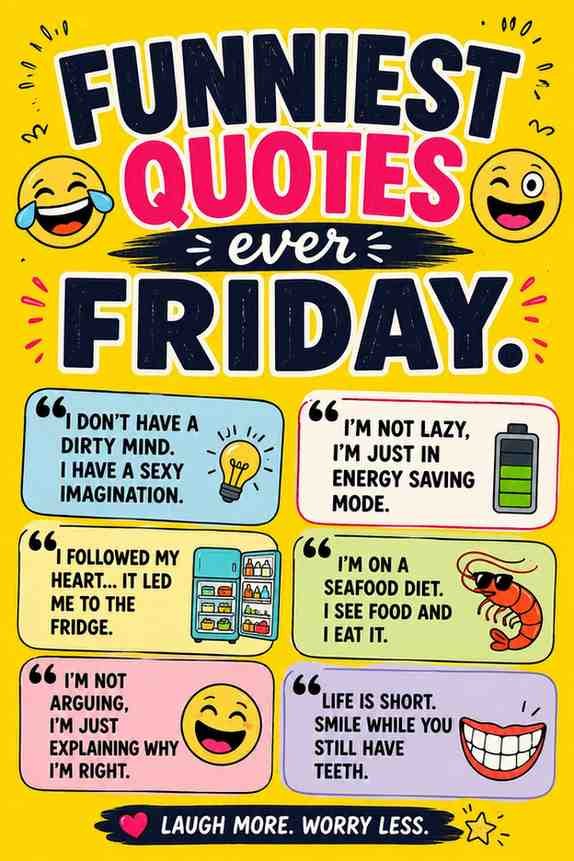 FUNNIEST
QUOTES
ever
FRIDAY.
“I DON'T HAVE A
DIRTY MIND.
I HAVE A SEXY
IMAGINATION.
“I'M NOT LAZY,
I'M JUST IN
ENERGY SAVING
MODE.
“I FOLLOWED MY
HEART... IT LED
ME TO THE
FRIDGE.
“I'M ON A
SEAFOOD DIET.
I SEE FOOD AND
I EAT IT.
“I'M NOT
ARGUING,
I'M JUST
EXPLAINING WHY
I'M RIGHT.
“LIFE IS SHORT.
SMILE WHILE YOU
STILL HAVE
TEETH.
LAUGH MORE. WORRY LESS.